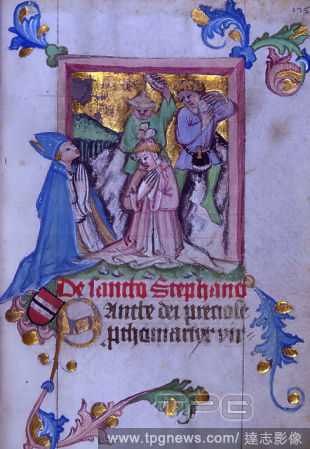 175
De sancto Stephano
Ancte dei preciose
pthomartyr vir=
TPG
www.tpgnews.com/達志影像